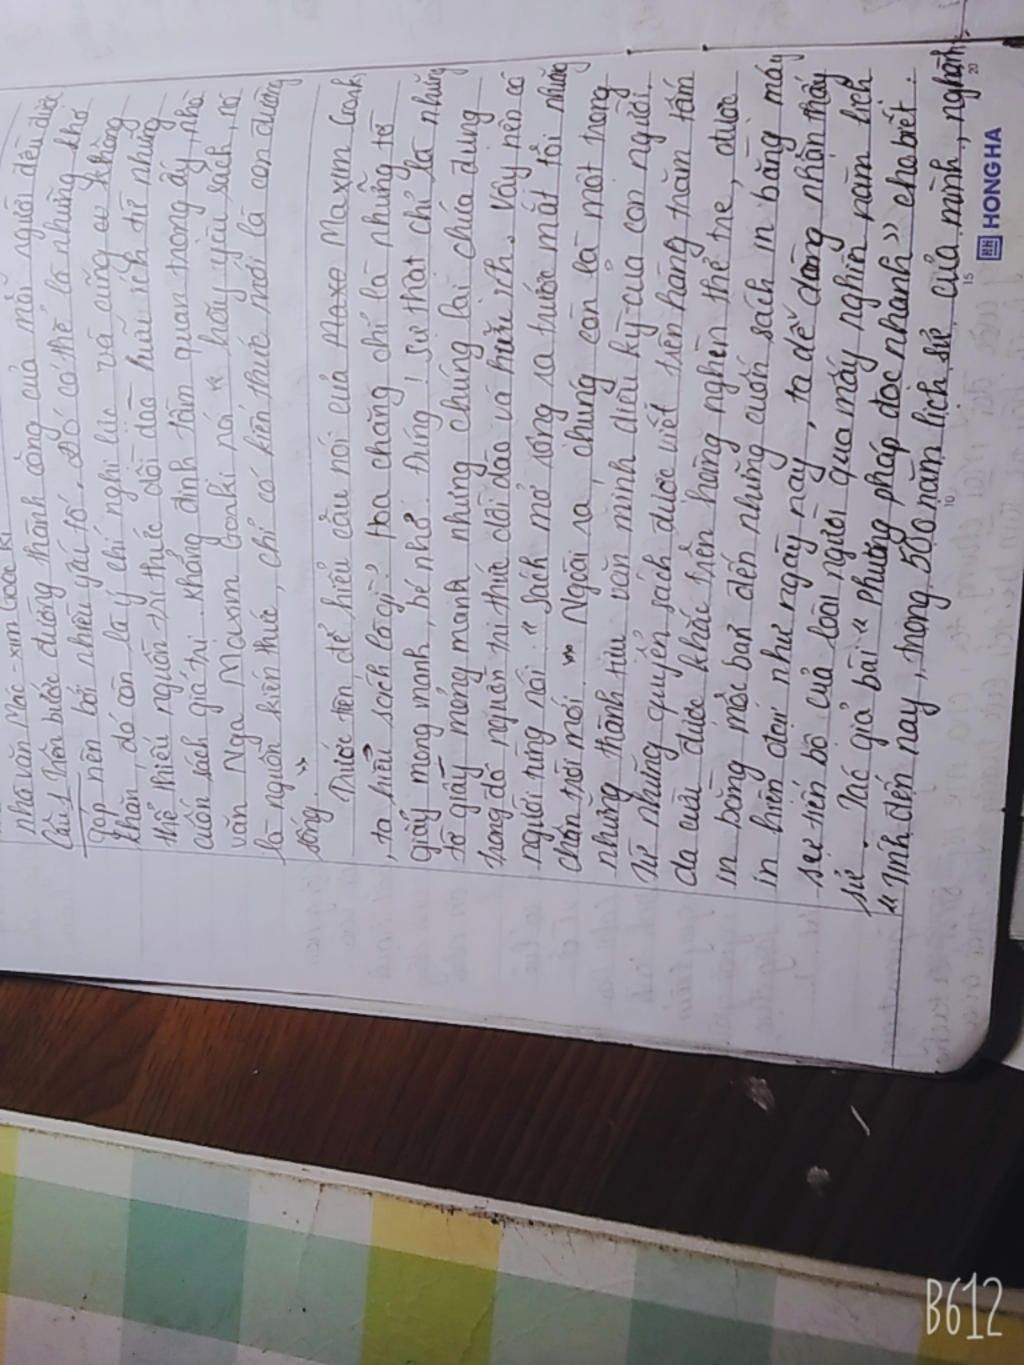 nhà văn Mac-xim Goocki
Câu 1 Trên bước đường thành công của mỗi người đều được
góp nên bởi nhiều yếu tố. Đó có thể là những khó
khăn, đó còn là ý chí nghị lực và cũng không
thể thiếu nguồn tri thức dồi dào hữu ích từ những
cuốn sách giá trị. Khẳng định tầm quan trọng ấy, nhà
văn Nga Maxim Gorki nó " hãy yêu sách, nó
là nguồn kiến thức, chỉ có kiến thức mới là con đường
sống. "
Trước tiên, để hiểu câu nói của Maxim Gorki
, ta hiểu sách là gì? Họa chăng chỉ là những tờ
giấy mong manh, bé nhỏ. Đúng! Sự thật chỉ là những
tờ giấy mỏng manh nhưng chúng lại chứa đựng
trong đó nguồn tri thức dồi dào và hữu ích. Vậy nên có
người từng nói " sách mở rộng ra trước mắt tôi những
chân trời mới " Ngoài ra, chúng còn là một trong
những thành tựu văn minh diệu kỳ của con người.
Từ những quyển sách được viết trên hàng trăm tấm
da cừu được khắc trên hàng nghìn thẻ tre, được
in bằng mốc bản đến những cuốn sách in bằng máy
in hiện đại như ngày nay, ta dễ dàng nhận thấy
sự tiến bộ của loài người qua mấy nghìn năm lịch
sử. Tác giả bài " Phương pháp đọc nhanh " cho biết:
" Tính đến nay, trong 500 năm lịch sử của mình, nghành
10 15 20
HONG HA
B612